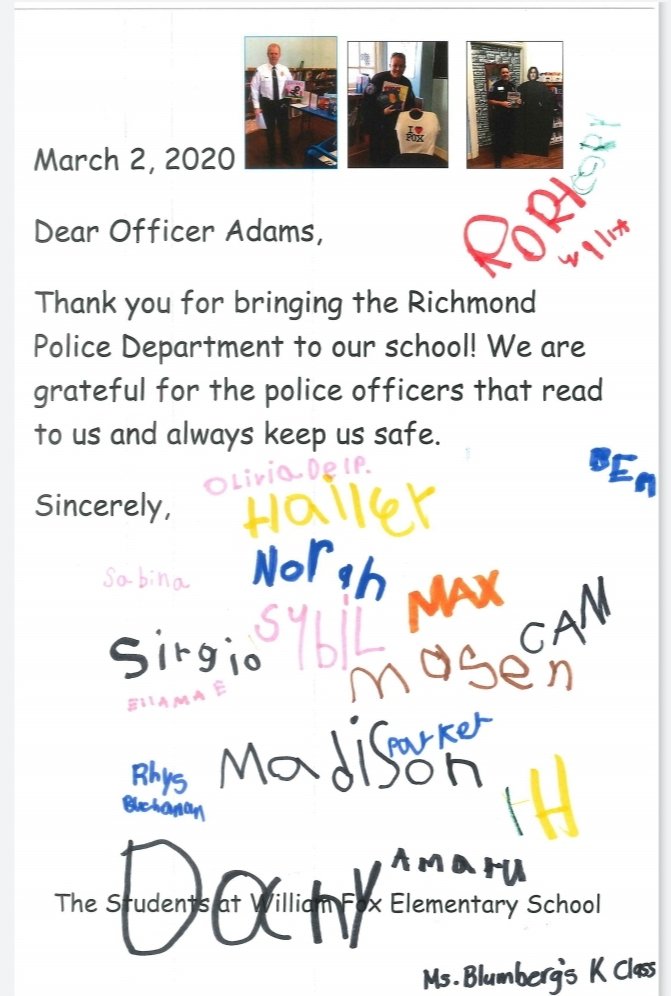 I ❤ FOX
March 2, 2020
RORY
Dear Officer Adams,
Thank you for bringing the Richmond
Police Department to our school! We are
grateful for the police officers that read
to us and always keep us safe.
BEn
Olivia Delp.
Sincerely,
Hailey
Norah
Sabina
MAX
SYbiL
CAM
Sirgio
masen
EllAMAE
parker
Madison
Rhys
Buchanan
H
Dany
Amaru
The Students at William Fox Elementary School
Ms. Blumberg's K Class